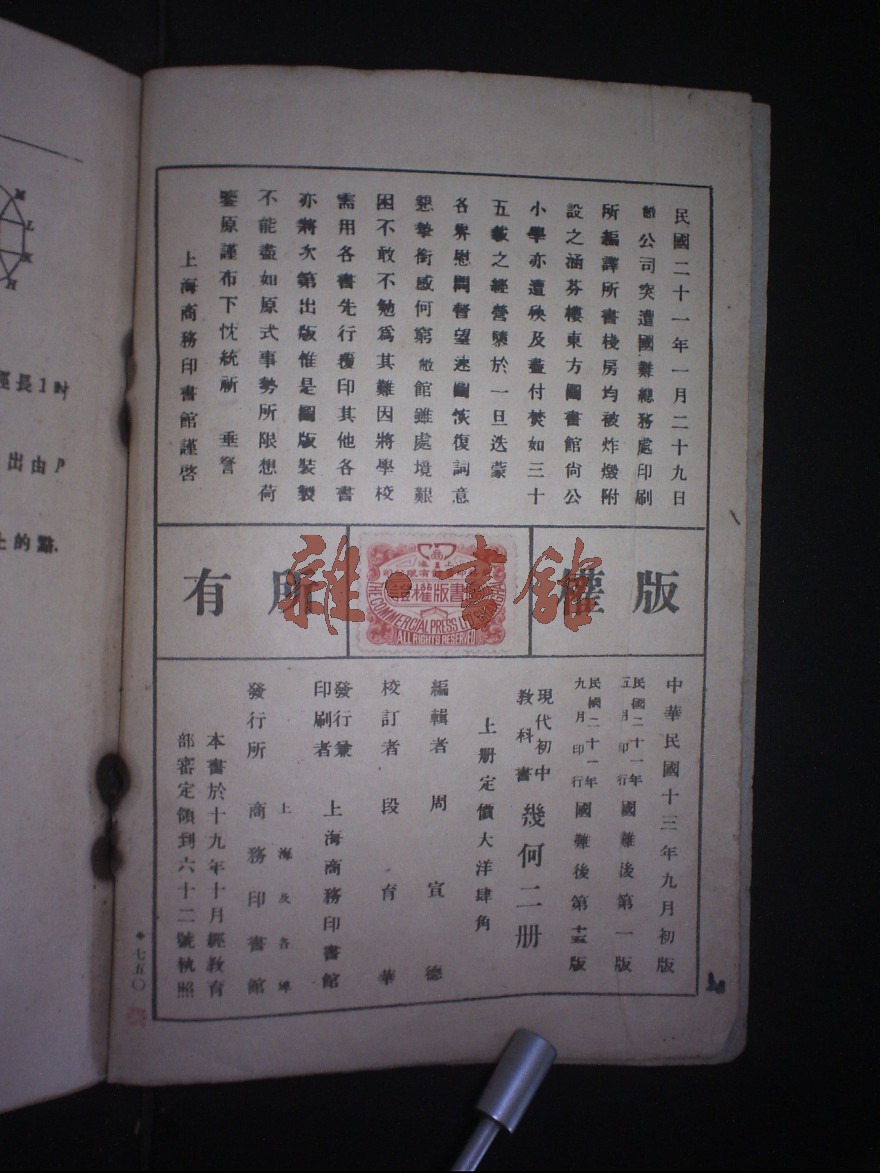 民國二十一年一月二十九日
敝公司突遭國難總務處印刷
所編譯所書棧房均被炸燬附
設之涵芬樓東方圖書館尚公
小學亦遭殃及盡付焚如三十
五載之經營隳於一旦迭蒙
各界慰問督望速圖恢復詞意
懇摯銜感何窮敝館雖處境艱
困不敢不勉爲其難因將學校
需用各書先行覆印其他各書
亦將次第出版惟是圖版裝製
不能盡如原式事勢所限想荷
鑒原謹布下忱統祈 垂詧
上海商務印書館謹啓
版權所有
書版權證
THE COMMERCIAL PRESS LTD
ALL RIGHTS RESERVED
雜·書館
中華民國十三年九月初版
民國二十一年五月印行 國難後第一版
民國二十一年九月印行 國難後第十五版
現代初中教科書 幾何二册
上册定價大洋肆角
編輯者 周宣德
校訂者 段育華
發行兼印刷者 上海商務印書館
發行所 上海及各埠 商務印書館
本書於十九年十月經教育
部審定領到六十二號執照
七五〇
M
L
K
H
徑長1吋
出由P
上的點.